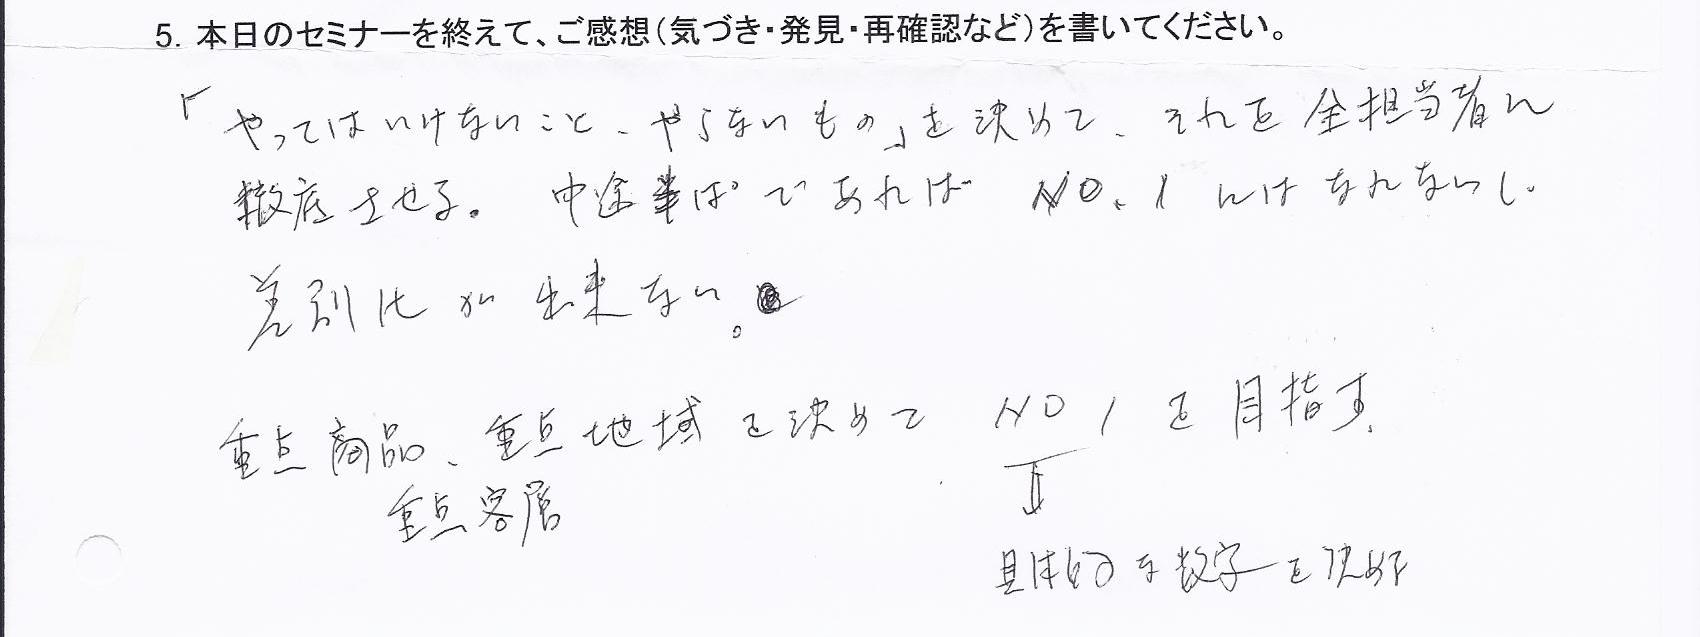 5. 本日のセミナーを終えて、ご感想(気づき・発見・再確認など)を書いてください。
「やってはいけないこと、やらないもの」を決めて、それを全担当者に
徹底させる。中途半ぱであれば NO.1 にはなれないし、
差別化が出来ない。
重点商品、重点地域を決めて NO1を目指す。
重点客層
⇓
具体的な数字を決める